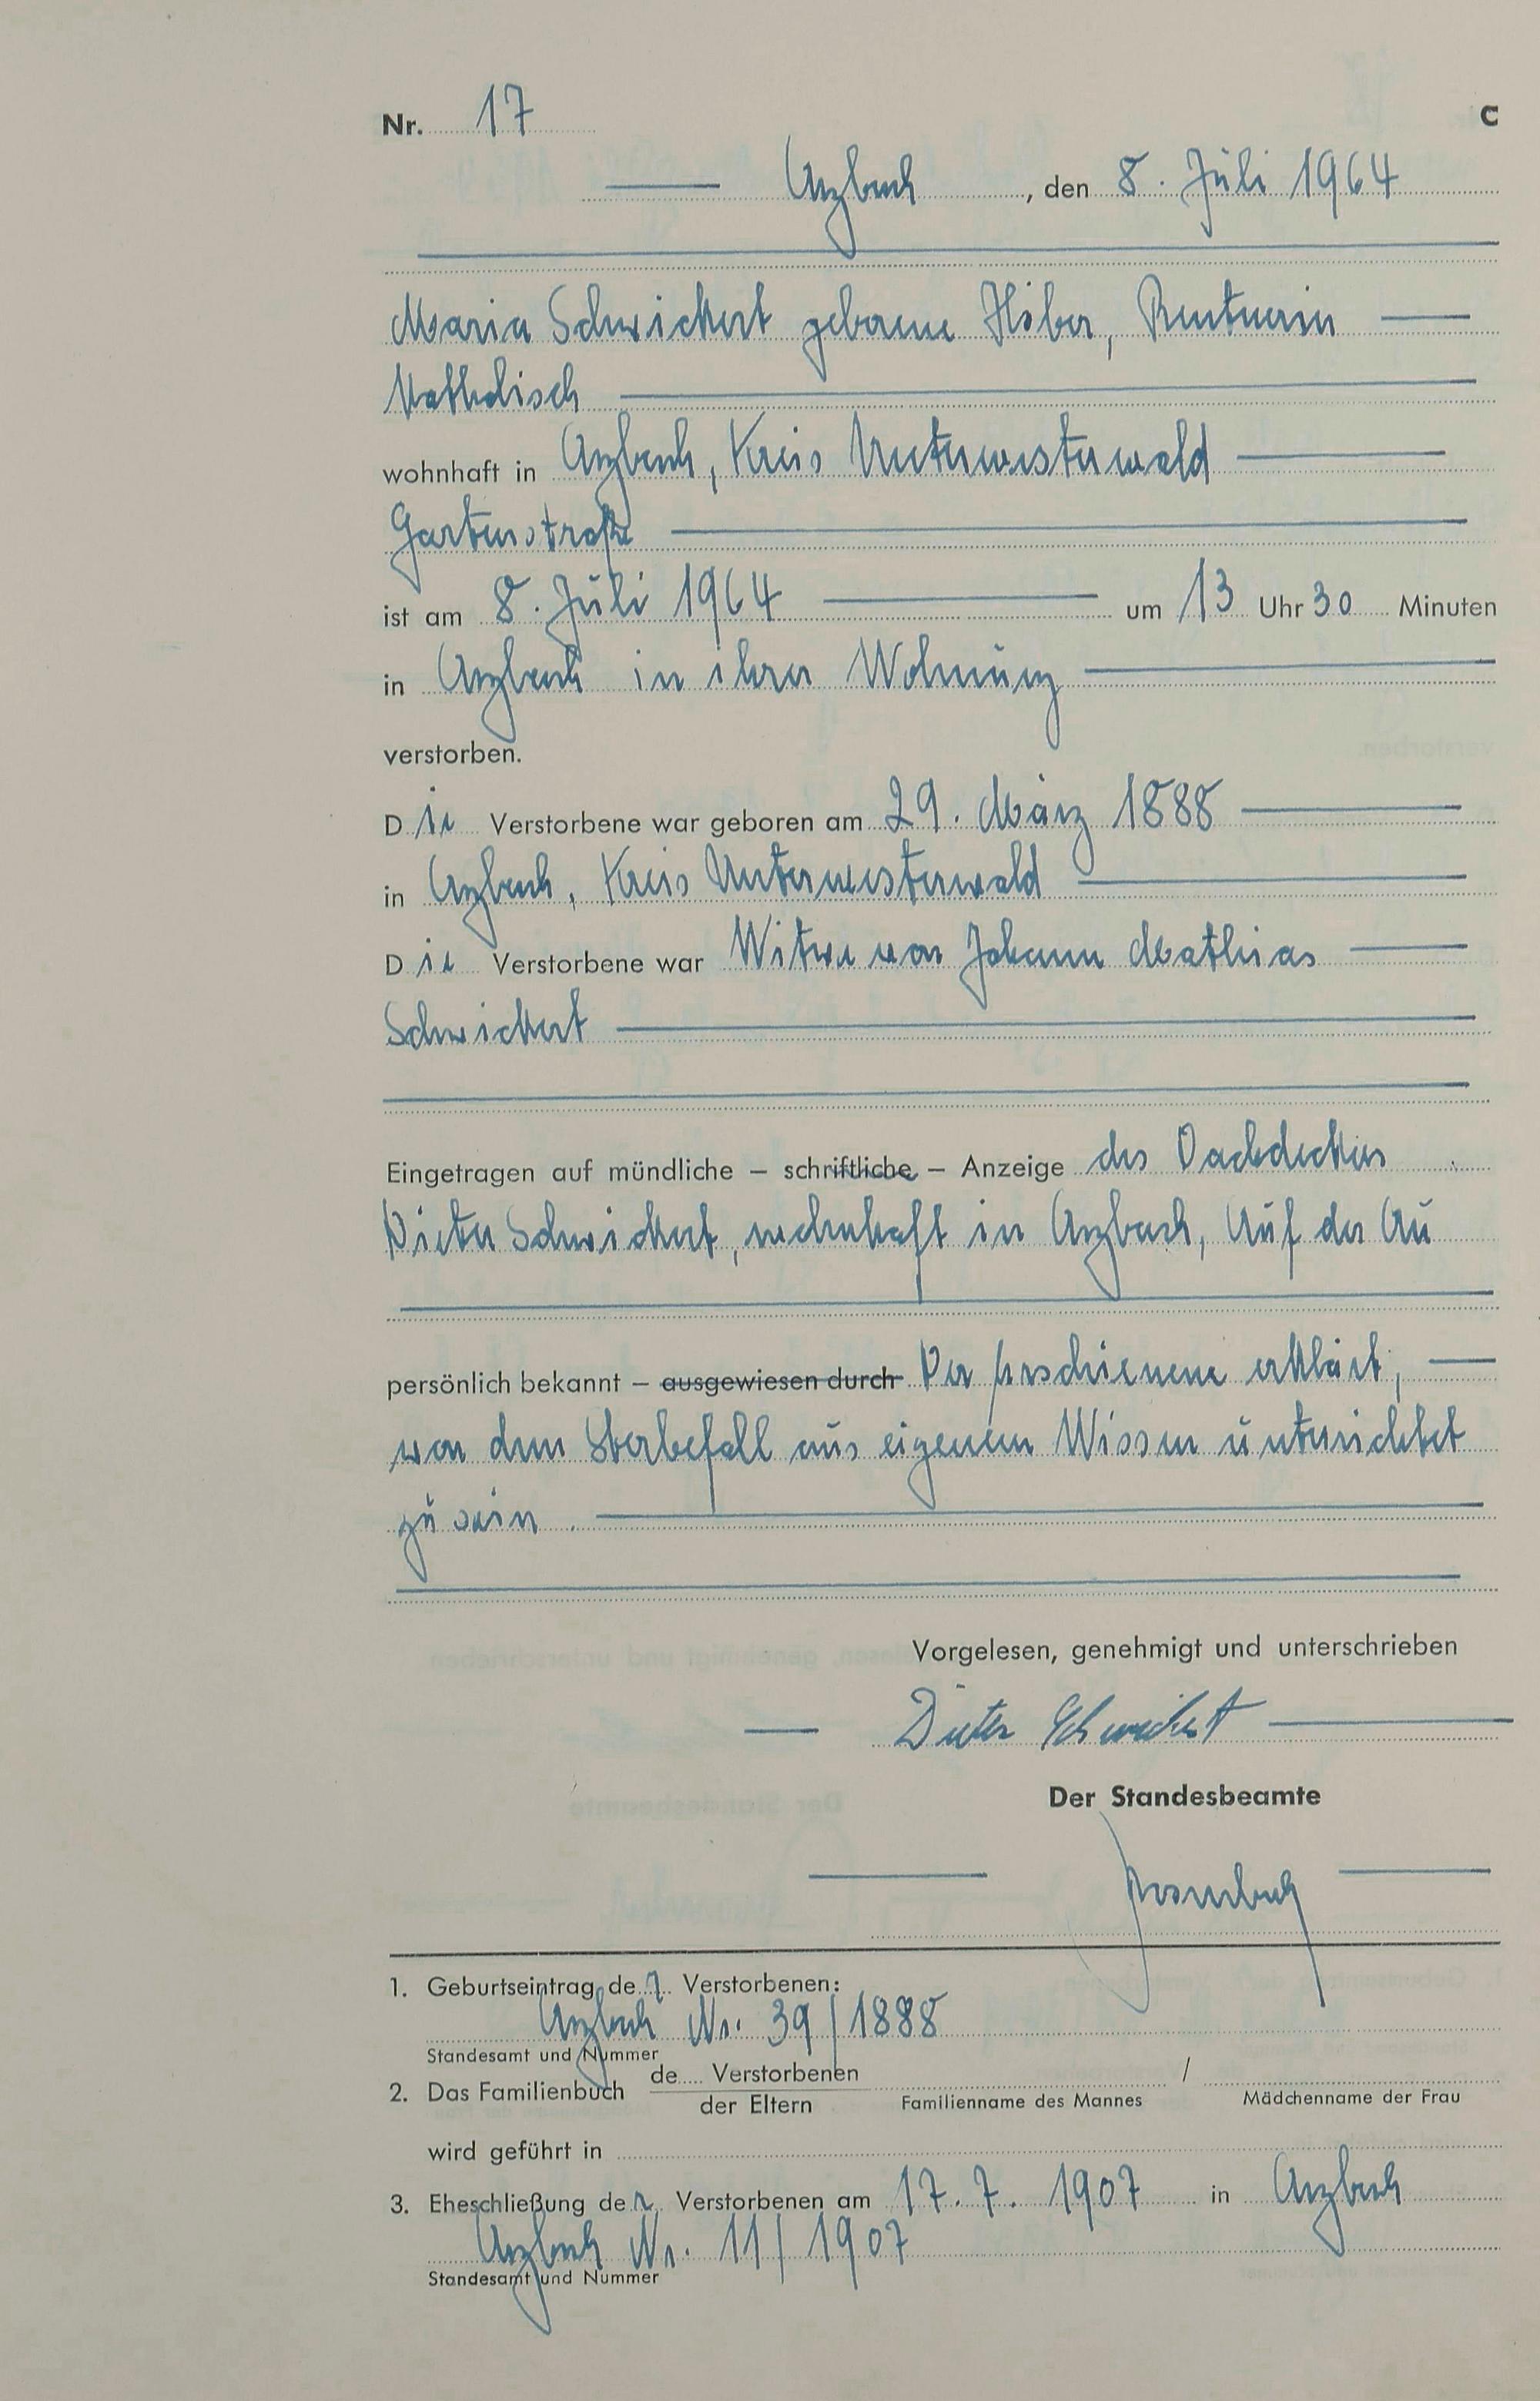 Nr. 17 C
Arzbach, den 8. Juli 1964
Maria Schwickert geborene Höber, Rentnerin
katholisch
wohnhaft in Arzbach, Kreis Unterwesterwald
Gartenstraße
ist am 8. Juli 1964 um 13 Uhr 30 Minuten
in Arzbach in ihrer Wohnung
verstorben.
Die Verstorbene war geboren am 29. März 1888
in Arzbach, Kreis Unterwesterwald
Die Verstorbene war Witwe von Johann Mathias
Schwickert
Eingetragen auf mündliche – schriftliche – Anzeige des Dachdeckers
Dieter Schwickert, wohnhaft in Arzbach, Auf der Au
persönlich bekannt – ausgewiesen durch Der Erschienene erklärt,
von dem Sterbefall aus eigenem Wissen unterrichtet
zu sein.
Vorgelesen, genehmigt und unterschrieben
Dieter Schwickert
Der Standesbeamte
1. Geburtseintrag der Verstorbenen:
Arzbach Nr. 39/1888
Standesamt und Nummer
2. Das Familienbuch de.... Verstorbenen / 
der Eltern Familienname des Mannes Mädchenname der Frau
wird geführt in
3. Eheschließung der Verstorbenen am 17. 7. 1907 in Arzbach
Arzbach Nr. 11/1907
Standesamt und Nummer